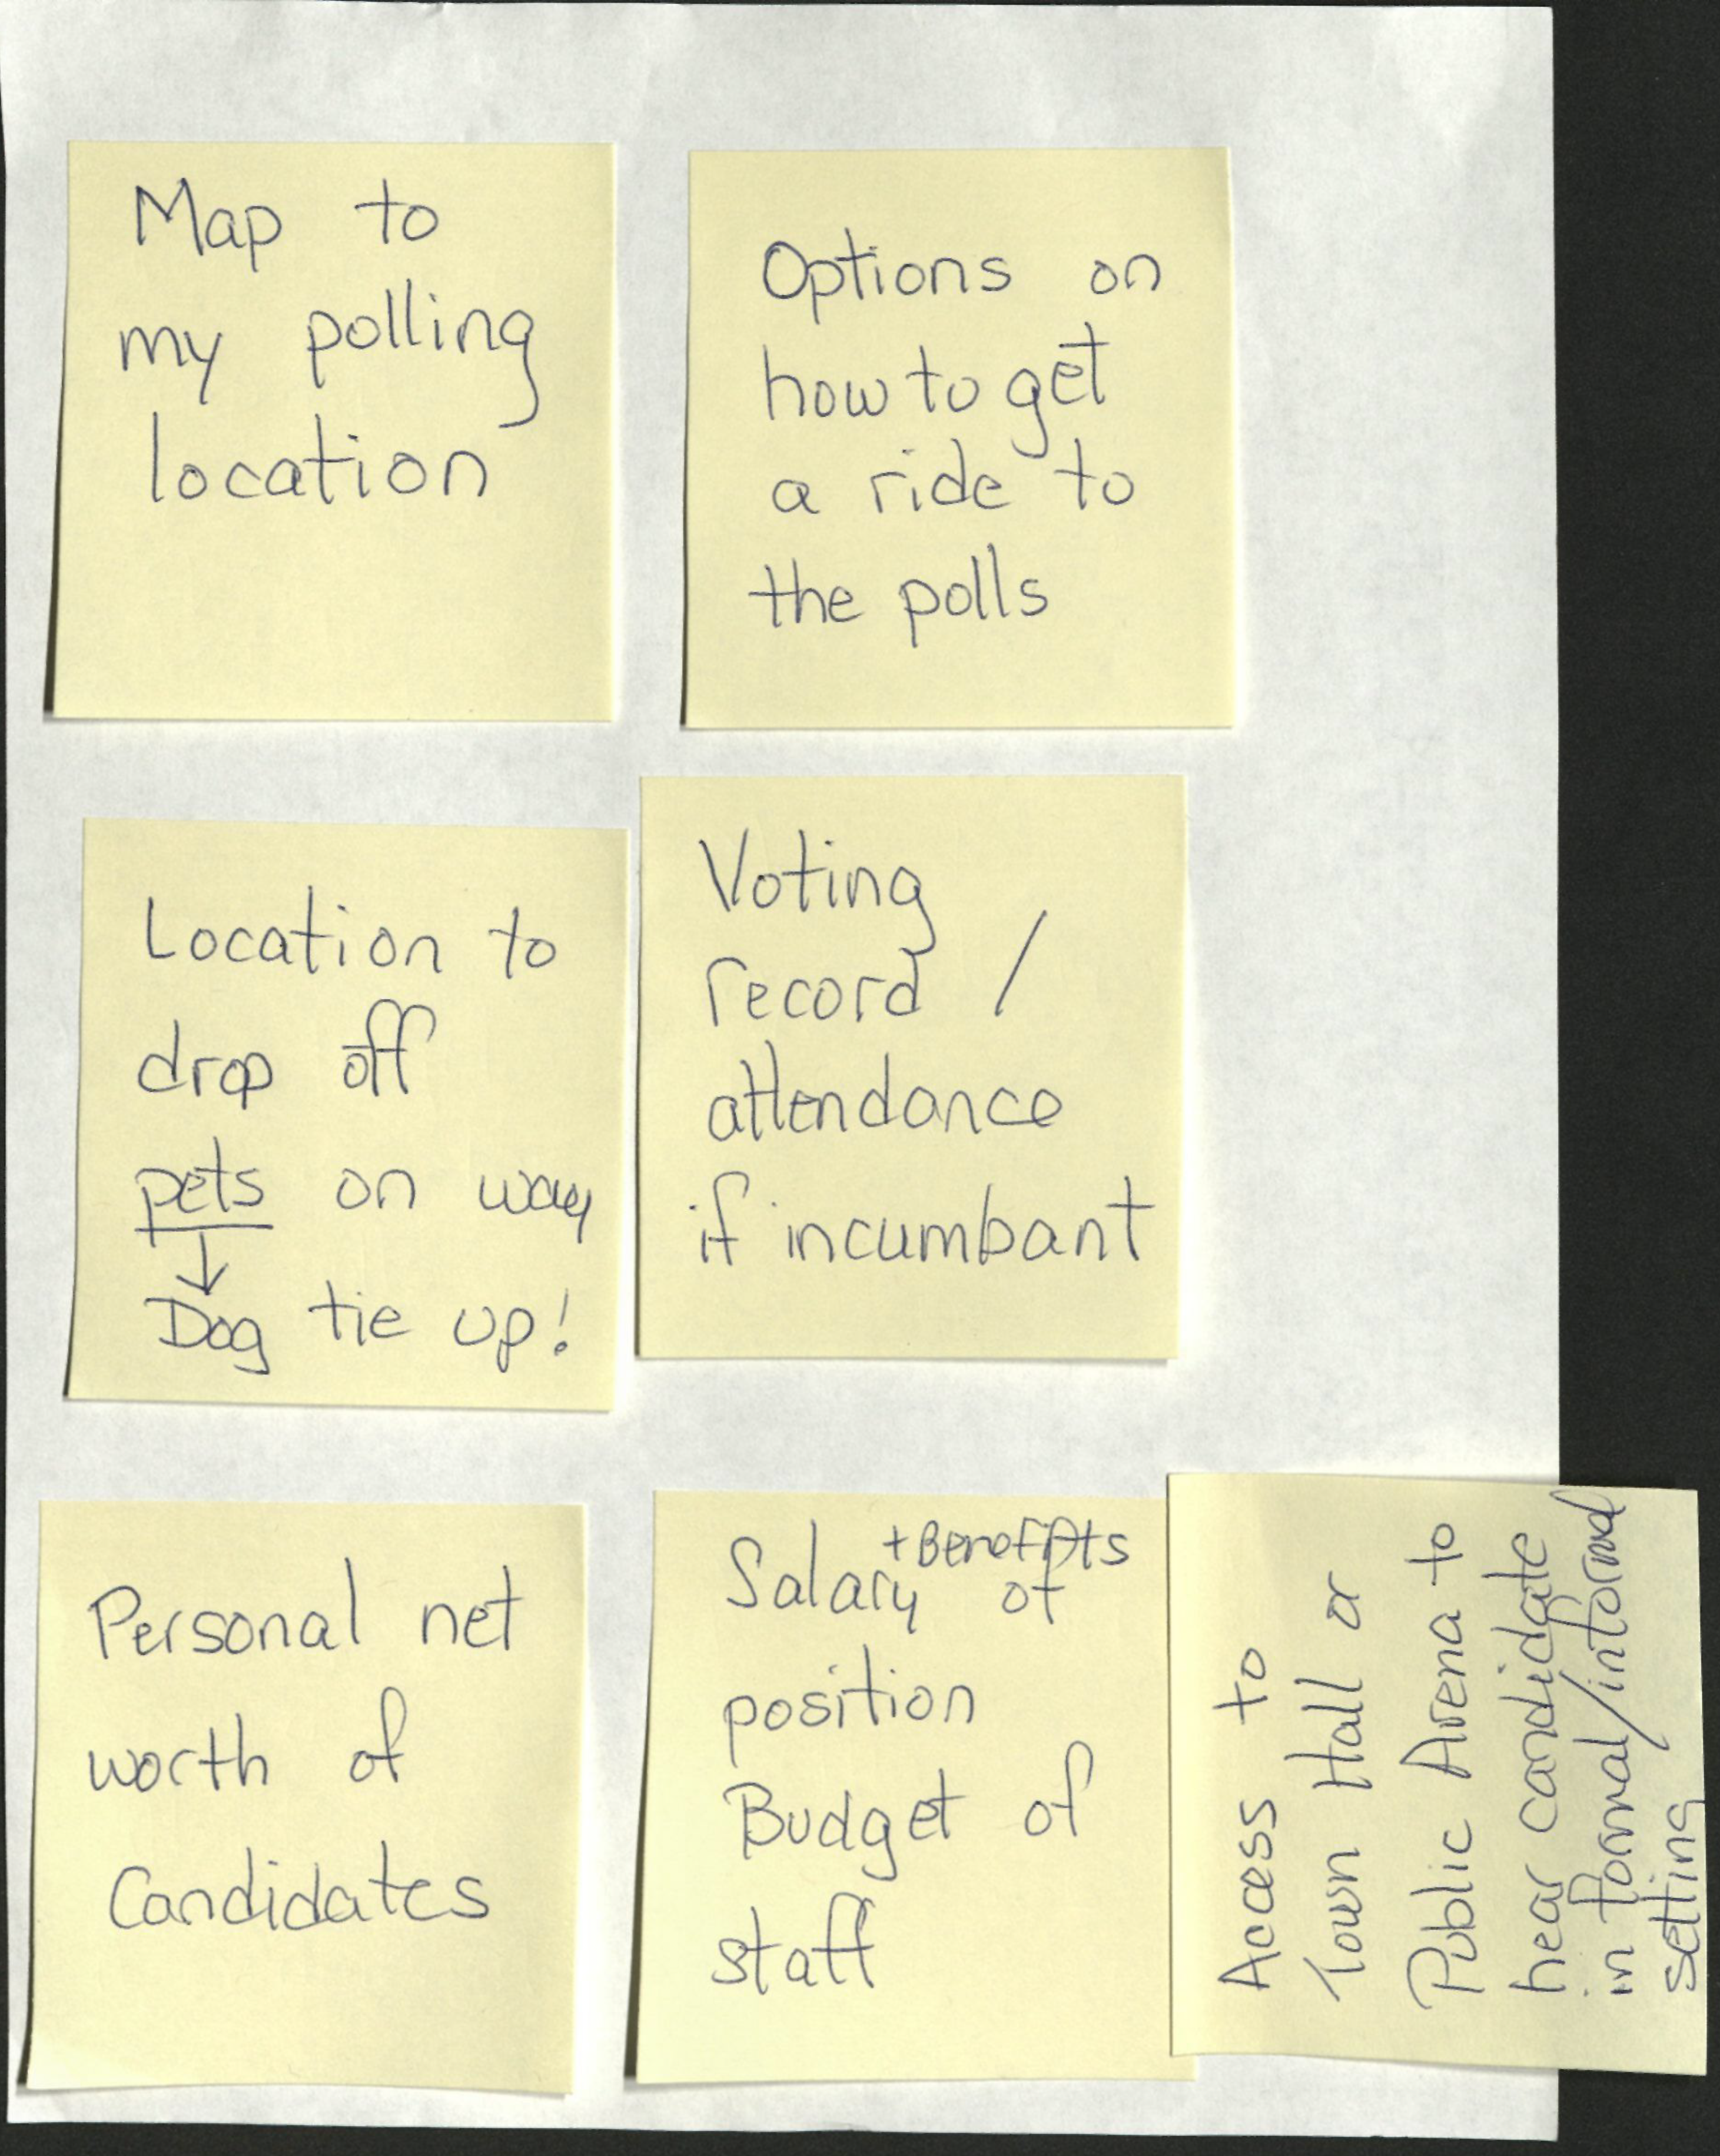 Map to
my polling
location
Options on
how to get
a ride to
the polls
Location to
drop off
pets on way
↓
Dog tie up!
Voting
record /
attendance
if incumbant
Personal net
worth of
Candidates
+ Benefits
Salary of
position
Budget of
staff
Access to
Town Hall or
Public Arena to
hear candidate
in formal/informal
setting